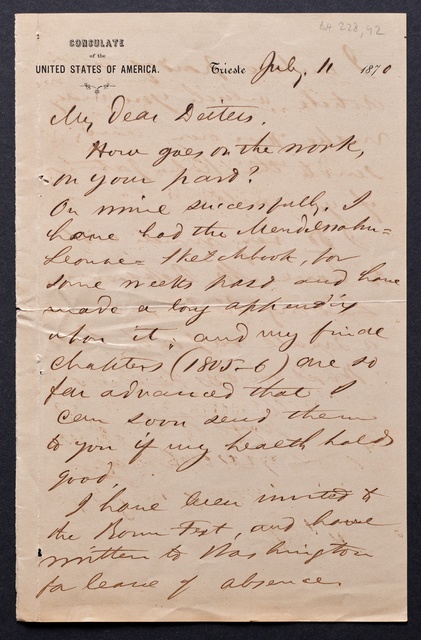 BH 228, 42
CONSULATE
of the
UNITED STATES OF AMERICA.
Trieste July, 11 1870
My Dear Deiters.
How goes on the work,
on your part?
On mine successfully. I
have had the Mendelssohn=
Leonore= Sketchbook, for
some weeks past and have
made a long appendix
upon it; and my final
chapters (1805-6) are so
far advanced that I
can soon send them
to you if my health holds
good.
I have been invited to
the Bonn Fest, and have
written to Washington
for leave of absence.